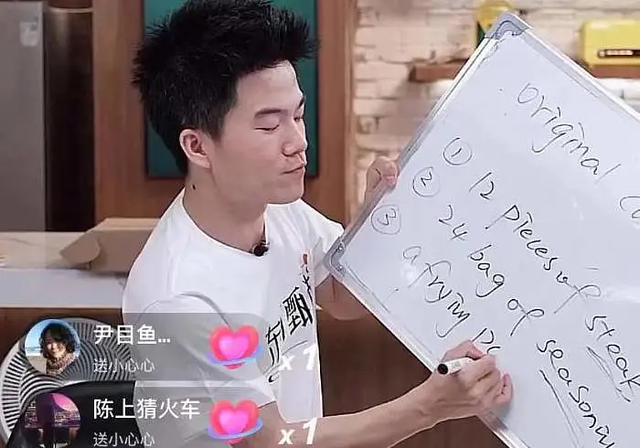 original
① 12 pieces of steak,
② 24 bag of seasoning
③ a frying pa
东 甄
尹目鱼...
送小心心
x 1
陈上猜火车
送小心心
x 1